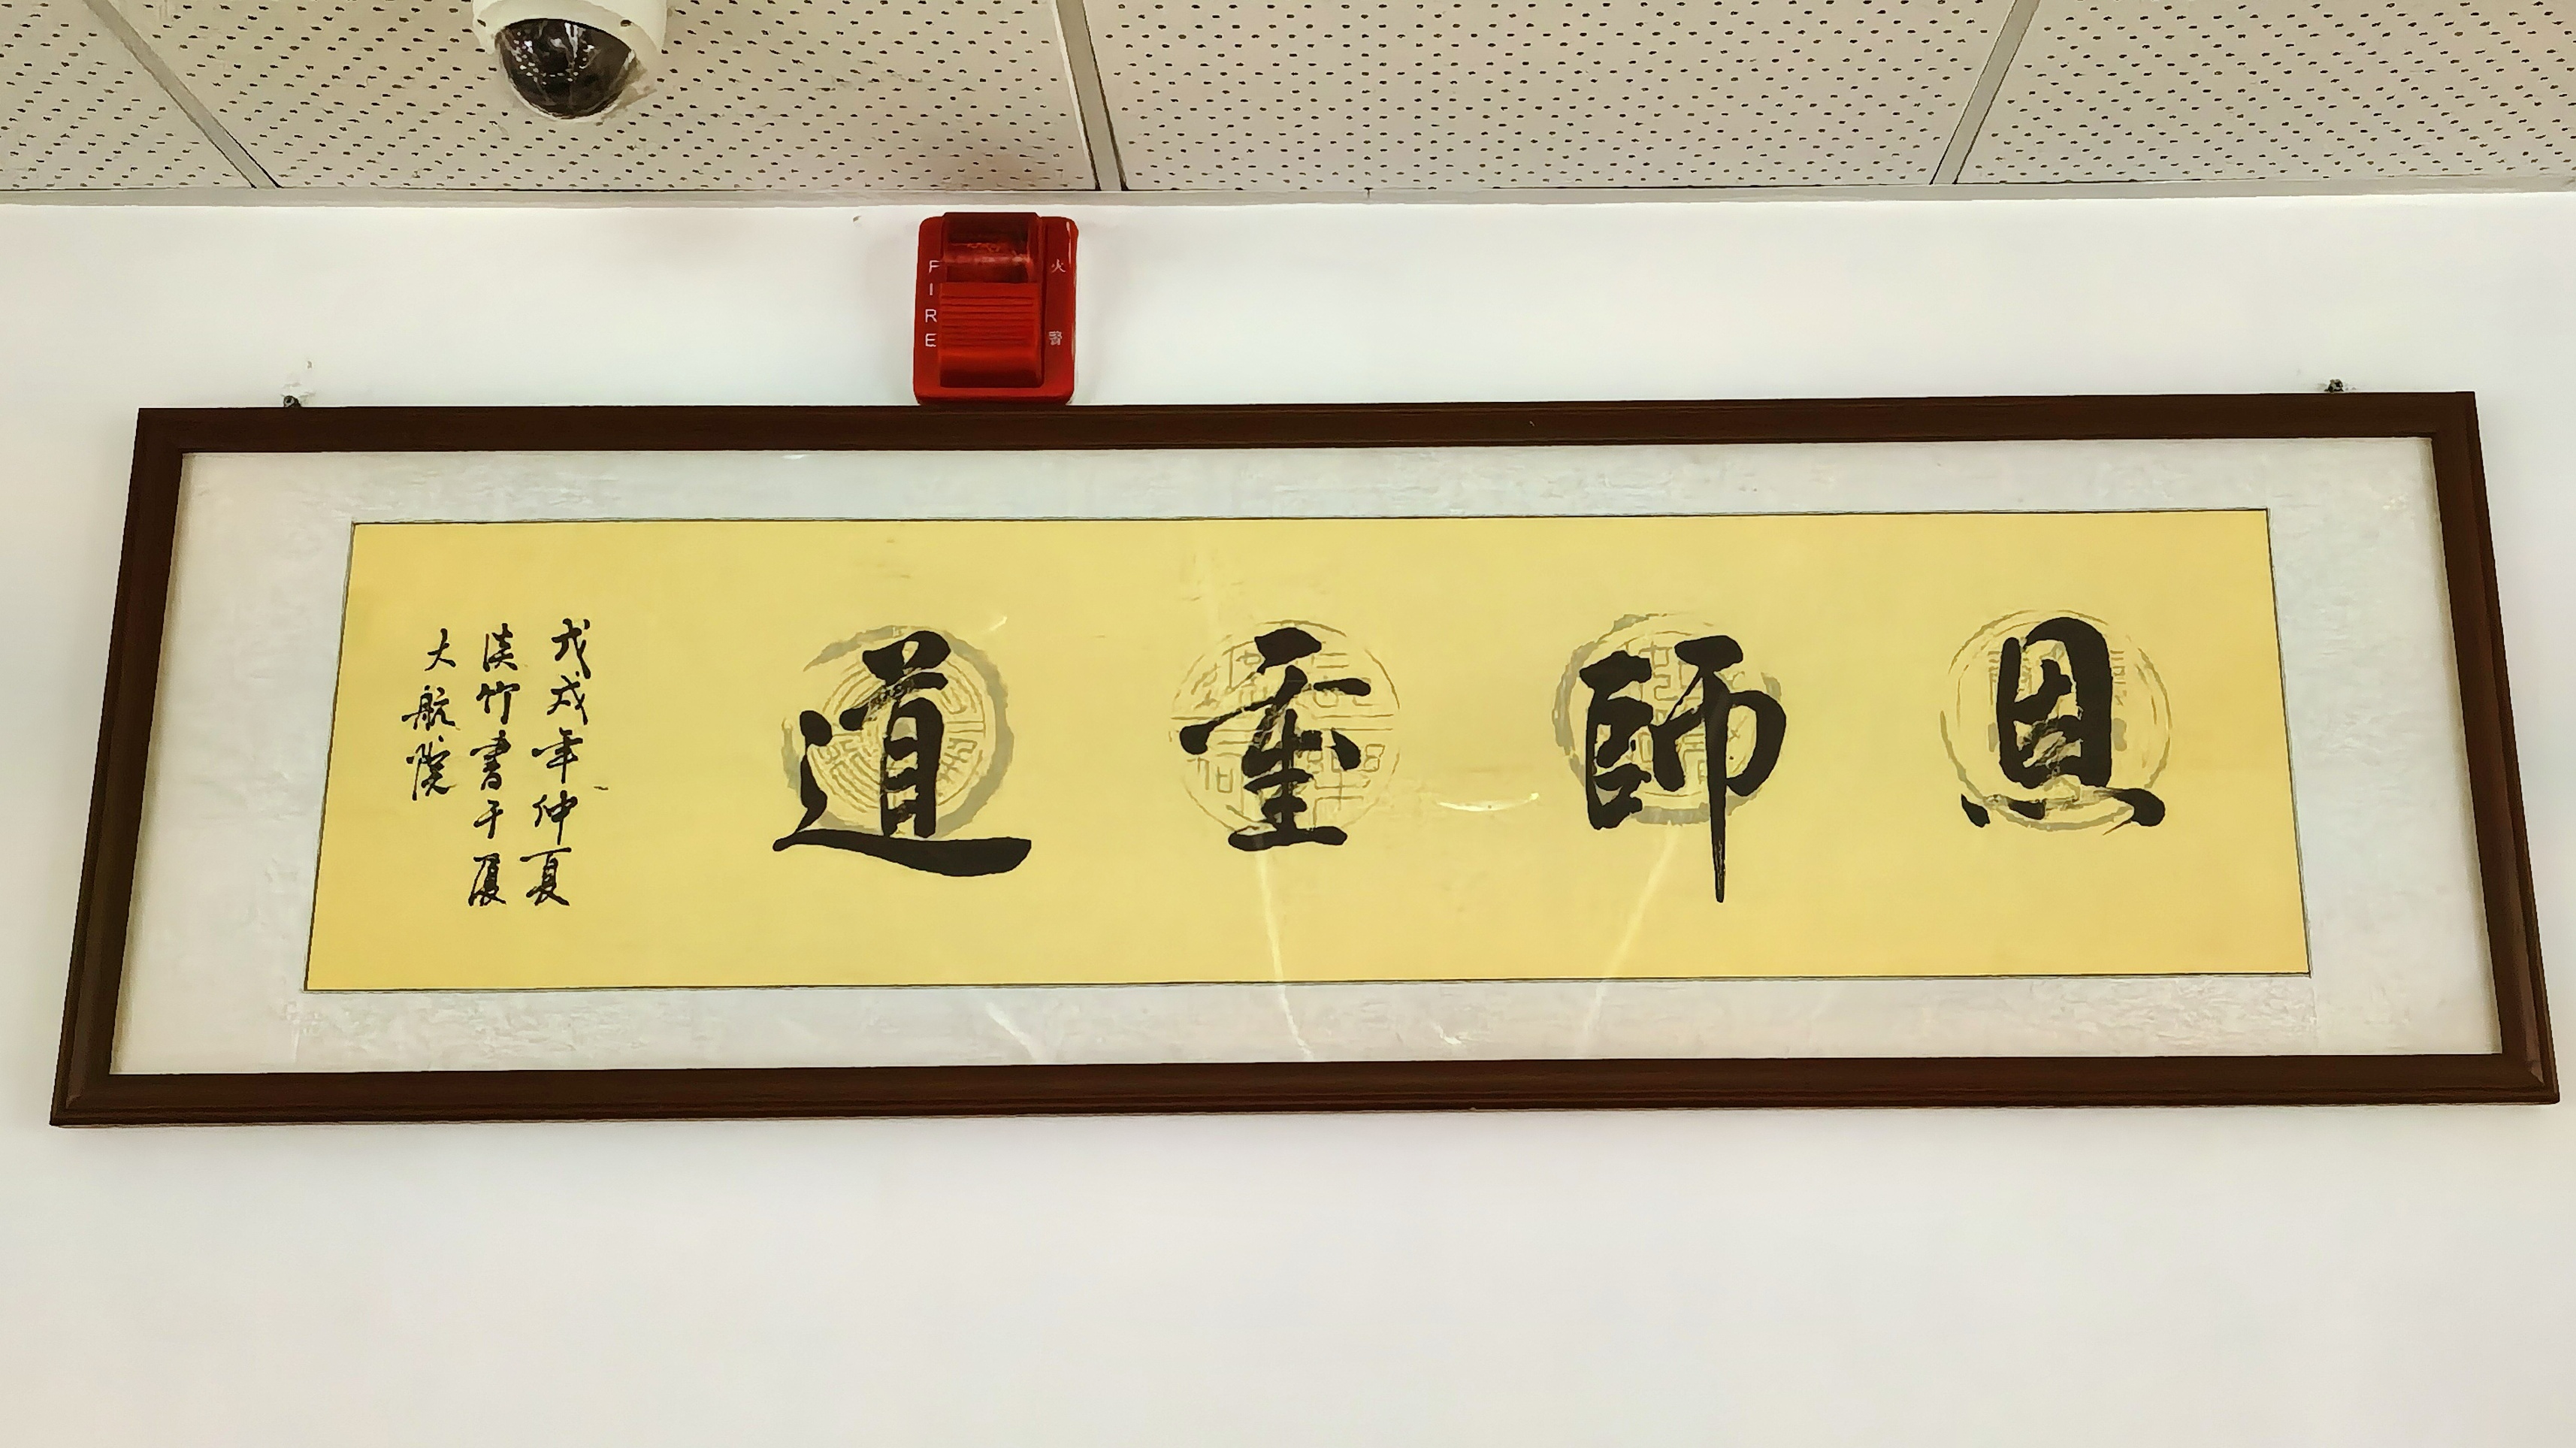 FIRE
火警
恩師重道
戊戌年仲夏
淡竹書于厦
大航院